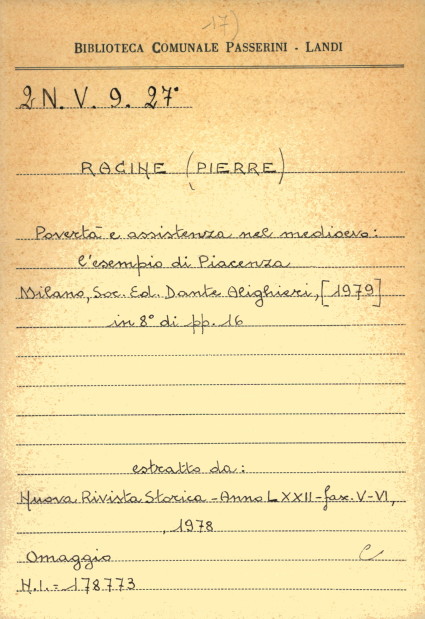 17)
BIBLIOTECA COMUNALE PASSERINI - LANDI
2 N. V. 9. 27°
RACINE (PIERRE)
Povertà e assistenza nel medioevo:
l'esempio di Piacenza
Milano, Soc. Ed. Dante Alighieri, [1979]
in 8° di pp. 16
estratto da:
Nuova Rivista Storica - Anno LXXII - fasc. V-VI,
, 1978
Omaggio C
N.I. = 178773